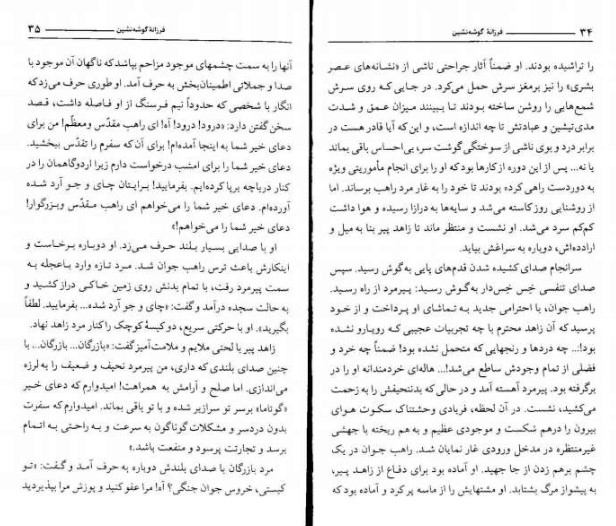 ۳۴ فرزانۀ گوشه‌نشین
را تراشیده بودند. او ضمناً آثار جراحتی ناشی از «نشانه‌های عصر
بشری» را نیز برمغز سرش حمل می‌کرد. در جایی‌که روی سرش
شمع‌هایی را روشن ساخته بودند تا ببینند میزان عمق و شدت
مدی‌تیشین و عبادتش تا چه اندازه است، و این که آیا قادر هست در
برابر درد و بوی ناشی از سوختگی گوشت سر، بی‌احساس باقی بماند
یا نه... پس از این دوره از کارها بود که او را برای انجام مأموریتی ویژه
به دوردست راهی کرده بودند تا خود را به غار مرد راهب برساند. اما
از روشنایی روز کاسته می‌شد و سایه‌ها به درازا رسیده و هوا داشت
کم‌کم سرد می‌شد. او نشست و منتظر ماند تا زاهد پیر بنا به میل و
اراده‌اش، دوباره به سراغش بیاید.
سرانجام صدای کشیده شدن قدم‌های پایی به‌گوش رسید. سپس
صدای تنفسی خِس خِس‌دار به‌گوش رسید: پیرمرد از راه رسید.
راهب جوان، با احترامی جدید به تماشای او پرداخت و از خود
پرسید که آن زاهد محترم با چه تجربیات عجیبی که روبارو نشده
بود!... چه دردها و رنجهایی که متحمل نشده بود! ضمناً چه خرد و
فضلی از تمام وجودش ساطع می‌شد!... هاله‌ای خردمندانه او را در
برگرفته بود. پیرمرد آهسته آمد و در حالی که بدن‌نحیفش را به زحمت
می‌کشید، نشست. در آن لحظه، فریادی وحشتناک سکوت هوای
بیرون را درهم شکست و موجودی عظیم و به هم ریخته با جهشی
غیرمنتظره در مدخل ورودی غار نمایان شد. راهب جوان در یک
چشم برهم زدن از جا جهید. او آماده بود برای دفاع از زاهد پیر،
به پیشواز مرگ بشتابد. او مشتهایش را از ماسه پر کرد و آماده بود که
فرزانۀ گوشه‌نشین ۳۵
آنها را به سمت چشمهای موجود مزاحم بپاشد که ناگهان آن موجود با
صدا و جملاتی اطمینان‌بخش به حرف آمد. او طوری حرف می‌زد که
انگار با شخصی که حدوداً نیم فرسنگ از او فاصله داشت، قصد
سخن گفتن دارد: «درود! درود! آه! ای راهب مقدّس ومعظّم! من برای
دعای خیر شما به اینجا آمده‌ام! برای آن که سفرم را تقدّس ببخشید.
دعای خیر شما را برای امشب درخواست دارم زیرا اردوگاهمان را در
کنار دریاچه برپا کرده‌ایم. بفرمایید! برایتان چای و جو آرد شده
آورده‌ام. دعای خیر شما را می‌خواهم ای راهب مقدّس وبزرگوار!
دعای خیر شما را می‌خواهم!»
او با صدایی بسیار بلند حرف می‌زد. او دوباره برخاست و
اینکارش باعث ترس راهب جوان شد. مرد تازه وارد باعجله به
سمت پیرمرد رفت، با تمام بدنش روی زمین خاکی دراز کشید و
به حالت سجده درآمد و گفت: «چای و جو آرد شده... بفرمایید. لطفاً
بگیرید». او با حرکتی سریع، دو کیسۀ کوچک را کنار مرد زاهد نهاد.
زاهد پیر با لحنی ملایم و ملامت‌آمیز گفت: «بازرگان... بازرگان... با
چنین صدای بلندی که داری، من پیرمرد نحیف و ضعیف را به لرزه
می‌اندازی. اما صلح و آرامش به همراهت! امیدوارم که دعای خیر
«گوتاما» برسر تو سرازیر شده و با تو باقی بماند. امیدوارم که سفرت
بدون دردسر و مشکلات گوناگون به سرعت و به راحتی به اتمام
برسد و تجارتت پرسود و منفعت باشد.»
مرد بازرگان با صدای بلندش دوباره به حرف آمد و گفت: «تو
کیستی، خروس جوان جنگی؟ آه! مرا عفو کنید و پوزش مرا بپذیردید